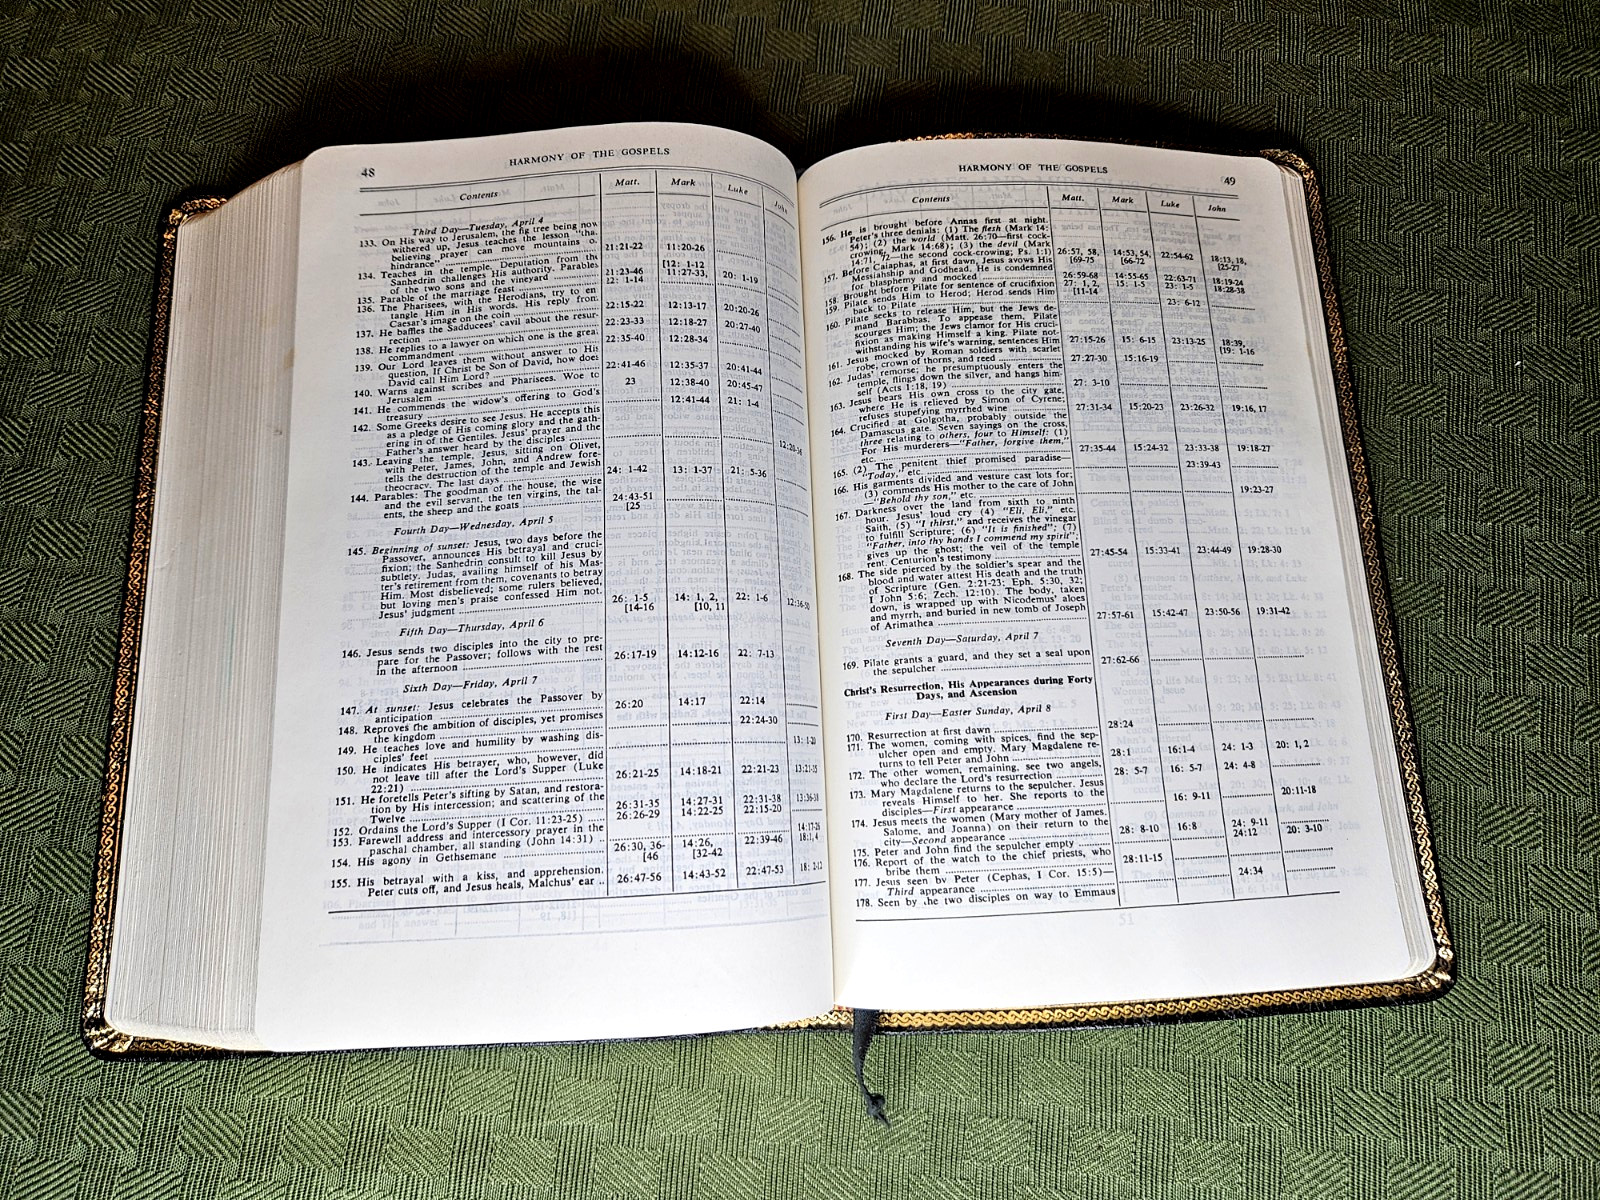 48
HARMONY OF THE GOSPELS
Contents Matt. Mark Luke John
Third Day—Tuesday, April 4
133. On His way to Jerusalem, the fig tree being now
withered up, Jesus teaches the lesson "tha.
believing prayer can move mountains o.
hindrance" 21:21-22 11:20-26
134. Teaches in the temple. Deputation from the [12: 1-12
Sanhedrin challenges His authority. Parables 21:23-46 11:27-33, 20: 1-19
of the two sons and the vineyard
135. Parable of the marriage feast 12: 1-14
136. The Pharisees, with the Herodians, try to en
tangle Him in His words. His reply from
Caesar's image on the coin 22:15-22 12:13-17 20:20-26
137. He baffles the Sadducees' cavil about the resur-
rection 22:23-33 12:18-27 20:27-40
138. He replies to a lawyer on which one is the grea.
commandment 22:35-40 12:28-34
139. Our Lord leaves them without answer to His
question, If Christ be Son of David, how does
David call Him Lord? 22:41-46 12:35-37 20:41-44
140. Warns against scribes and Pharisees. Woe to
Jerusalem 23 12:38-40 20:45-47
141. He commends the widow's offering to God's
treasury 12:41-44 21: 1-4
142. Some Greeks desire to see Jesus. He accepts this
as a pledge of His coming glory and the gath-
ering in of the Gentiles. Jesus' prayer and the
Father's answer heard by the disciples 12:20-36
143. Leaving the temple, Jesus, sitting on Olivet,
with Peter, James, John, and Andrew fore-
tells the destruction of the temple and Jewish
theocracy. The last days 24: 1-42 13: 1-37 21: 5-36
144. Parables: The goodman of the house, the wise
and the evil servant, the ten virgins, the tal- 24:43-51
ents, the sheep and the goats [25
Fourth Day—Wednesday, April 5
145. Beginning of sunset: Jesus, two days before the
Passover, announces His betrayal and cruci-
fixion; the Sanhedrin consult to kill Jesus by
subtlety. Judas, availing himself of his Mas-
ter's retirement from them, covenants to betray
Him. Most disbelieved; some rulers believed,
but loving men's praise confessed Him not. 26: 1-5 14: 1, 2, 22: 1-6 12:36-50
Jesus' judgment [14-16 [10, 11
Fifth Day—Thursday, April 6
146. Jesus sends two disciples into the city to pre-
pare for the Passover; follows with the rest
in the afternoon 26:17-19 14:12-16 22: 7-13
Sixth Day—Friday, April 7
147. At sunset: Jesus celebrates the Passover by
anticipation 26:20 14:17 22:14
148. Reproves the ambition of disciples, yet promises
the kingdom 22:24-30
149. He teaches love and humility by washing dis-
ciples' feet 13: 1-20
150. He indicates His betrayer, who, however, did
not leave till after the Lord's Supper (Luke
22:21) 26:21-25 14:18-21 22:21-23 13:21-35
151. He foretells Peter's sifting by Satan, and restora-
tion by His intercession; and scattering of the
Twelve 26:31-35 14:27-31 22:31-38 13:36-38
152. Ordains the Lord's Supper (I Cor. 11:23-25) 26:26-29 14:22-25 22:15-20
153. Farewell address and intercessory prayer in the 14:17-26
paschal chamber, all standing (John 14:31) 18:1, 4
154. His agony in Gethsemane 26:30, 36- 14:26, 22:39-46
[46 [32-42
155. His betrayal with a kiss, and apprehension.
Peter cuts off, and Jesus heals, Malchus' ear 26:47-56 14:43-52 22:47-53 18: 2-12
HARMONY OF THE GOSPELS
49
Contents Matt. Mark Luke John
156. He is brought before Annas first at night.
Peter's three denials: (1) The flesh (Mark 14:
54); (2) the world (Matt. 26:70—first cock-
crowing, Mark 14:68); (3) the devil (Mark
14:71, 72—the second cock-crowing; Ps. 1:1) 26:57, 58, 14:53, 54, 22:54-62 18:13, 18,
[69-75 [66-72 [25-27
157. Before Caiaphas, at first dawn, Jesus avows His
Messiahship and Godhead. He is condemned
for blasphemy and mocked 26:59-68 14:55-65 22:63-71 18:19-24
158. Brought before Pilate for sentence of crucifixion 27: 1, 2, 15: 1-5 23: 1-5 18:28-38
159. Pilate sends Him to Herod; Herod sends Him [11-14
back to Pilate 23: 6-12
160. Pilate seeks to release Him, but the Jews de-
mand Barabbas. To appease them, Pilate
scourges Him; the Jews clamor for His cruci-
fixion as making Himself a king. Pilate not-
withstanding his wife's warning, sentences Him 27:15-26 15: 6-15 23:13-25 18:39,
[19: 1-16
161. Jesus mocked by Roman soldiers with scarlet
robe, crown of thorns, and reed 27:27-30 15:16-19
162. Judas' remorse; he presumptuously enters the
temple, flings down the silver, and hangs him-
self (Acts 1:18, 19) 27: 3-10
163. Jesus bears His own cross to the city gate,
where He is relieved by Simon of Cyrene;
refuses stupefying myrrhed wine 27:31-34 15:20-23 23:26-32 19:16, 17
164. Crucified at Golgotha, probably outside the
Damascus gate. Seven sayings on the cross,
three relating to others, four to Himself: (1)
For His murderers—"Father, forgive them,"
etc. 27:35-44 15:24-32 23:33-38 19:18-27
165. (2) The penitent thief promised paradise—
"Today," etc. 23:39-43
166. His garments divided and vesture cast lots for;
(3) commends His mother to the care of John
—"Behold thy son," etc. 19:23-27
167. Darkness over the land from sixth to ninth
hour. Jesus' loud cry (4) "Eli, Eli," etc.
Saith, (5) "I thirst," and receives the vinegar
to fulfill Scripture; (6) "It is finished"; (7)
"Father, into thy hands I commend my spirit";
gives up the ghost; the veil of the temple
rent. Centurion's testimony 27:45-54 15:33-41 23:44-49 19:28-30
168. The side pierced by the soldier's spear and the
blood and water attest His death and the truth
of Scripture (Gen. 2:21-23; Eph. 5:30, 32;
I John 5:6; Zech. 12:10). The body, taken
down, is wrapped up with Nicodemus' aloes
and myrrh, and buried in new tomb of Joseph
of Arimathea 27:57-61 15:42-47 23:50-56 19:31-42
Seventh Day—Saturday, April 7
169. Pilate grants a guard, and they set a seal upon
the sepulcher 27:62-66
Christ's Resurrection, His Appearances during Forty
Days, and Ascension
First Day—Easter Sunday, April 8
170. Resurrection at first dawn 28:24
171. The women, coming with spices, find the sep-
ulcher open and empty. Mary Magdalene re-
turns to tell Peter and John 28:1 16:1-4 24: 1-3 20: 1, 2
172. The other women, remaining, see two angels,
who declare the Lord's resurrection 28: 5-7 16: 5-7 24: 4-8
173. Mary Magdalene returns to the sepulcher. Jesus
reveals Himself to her. She reports to the
disciples—First appearance 16: 9-11 20:11-18
174. Jesus meets the women (Mary mother of James,
Salome, and Joanna) on their return to the
city—Second appearance 28: 8-10 16:8 24: 9-11
175. Peter and John find the sepulcher empty 24:12 20: 3-10
176. Report of the watch to the chief priests, who
bribe them 28:11-15
177. Jesus seen by Peter (Cephas, I Cor. 15:5)—
Third appearance 24:34
178. Seen by the two disciples on way to Emmaus